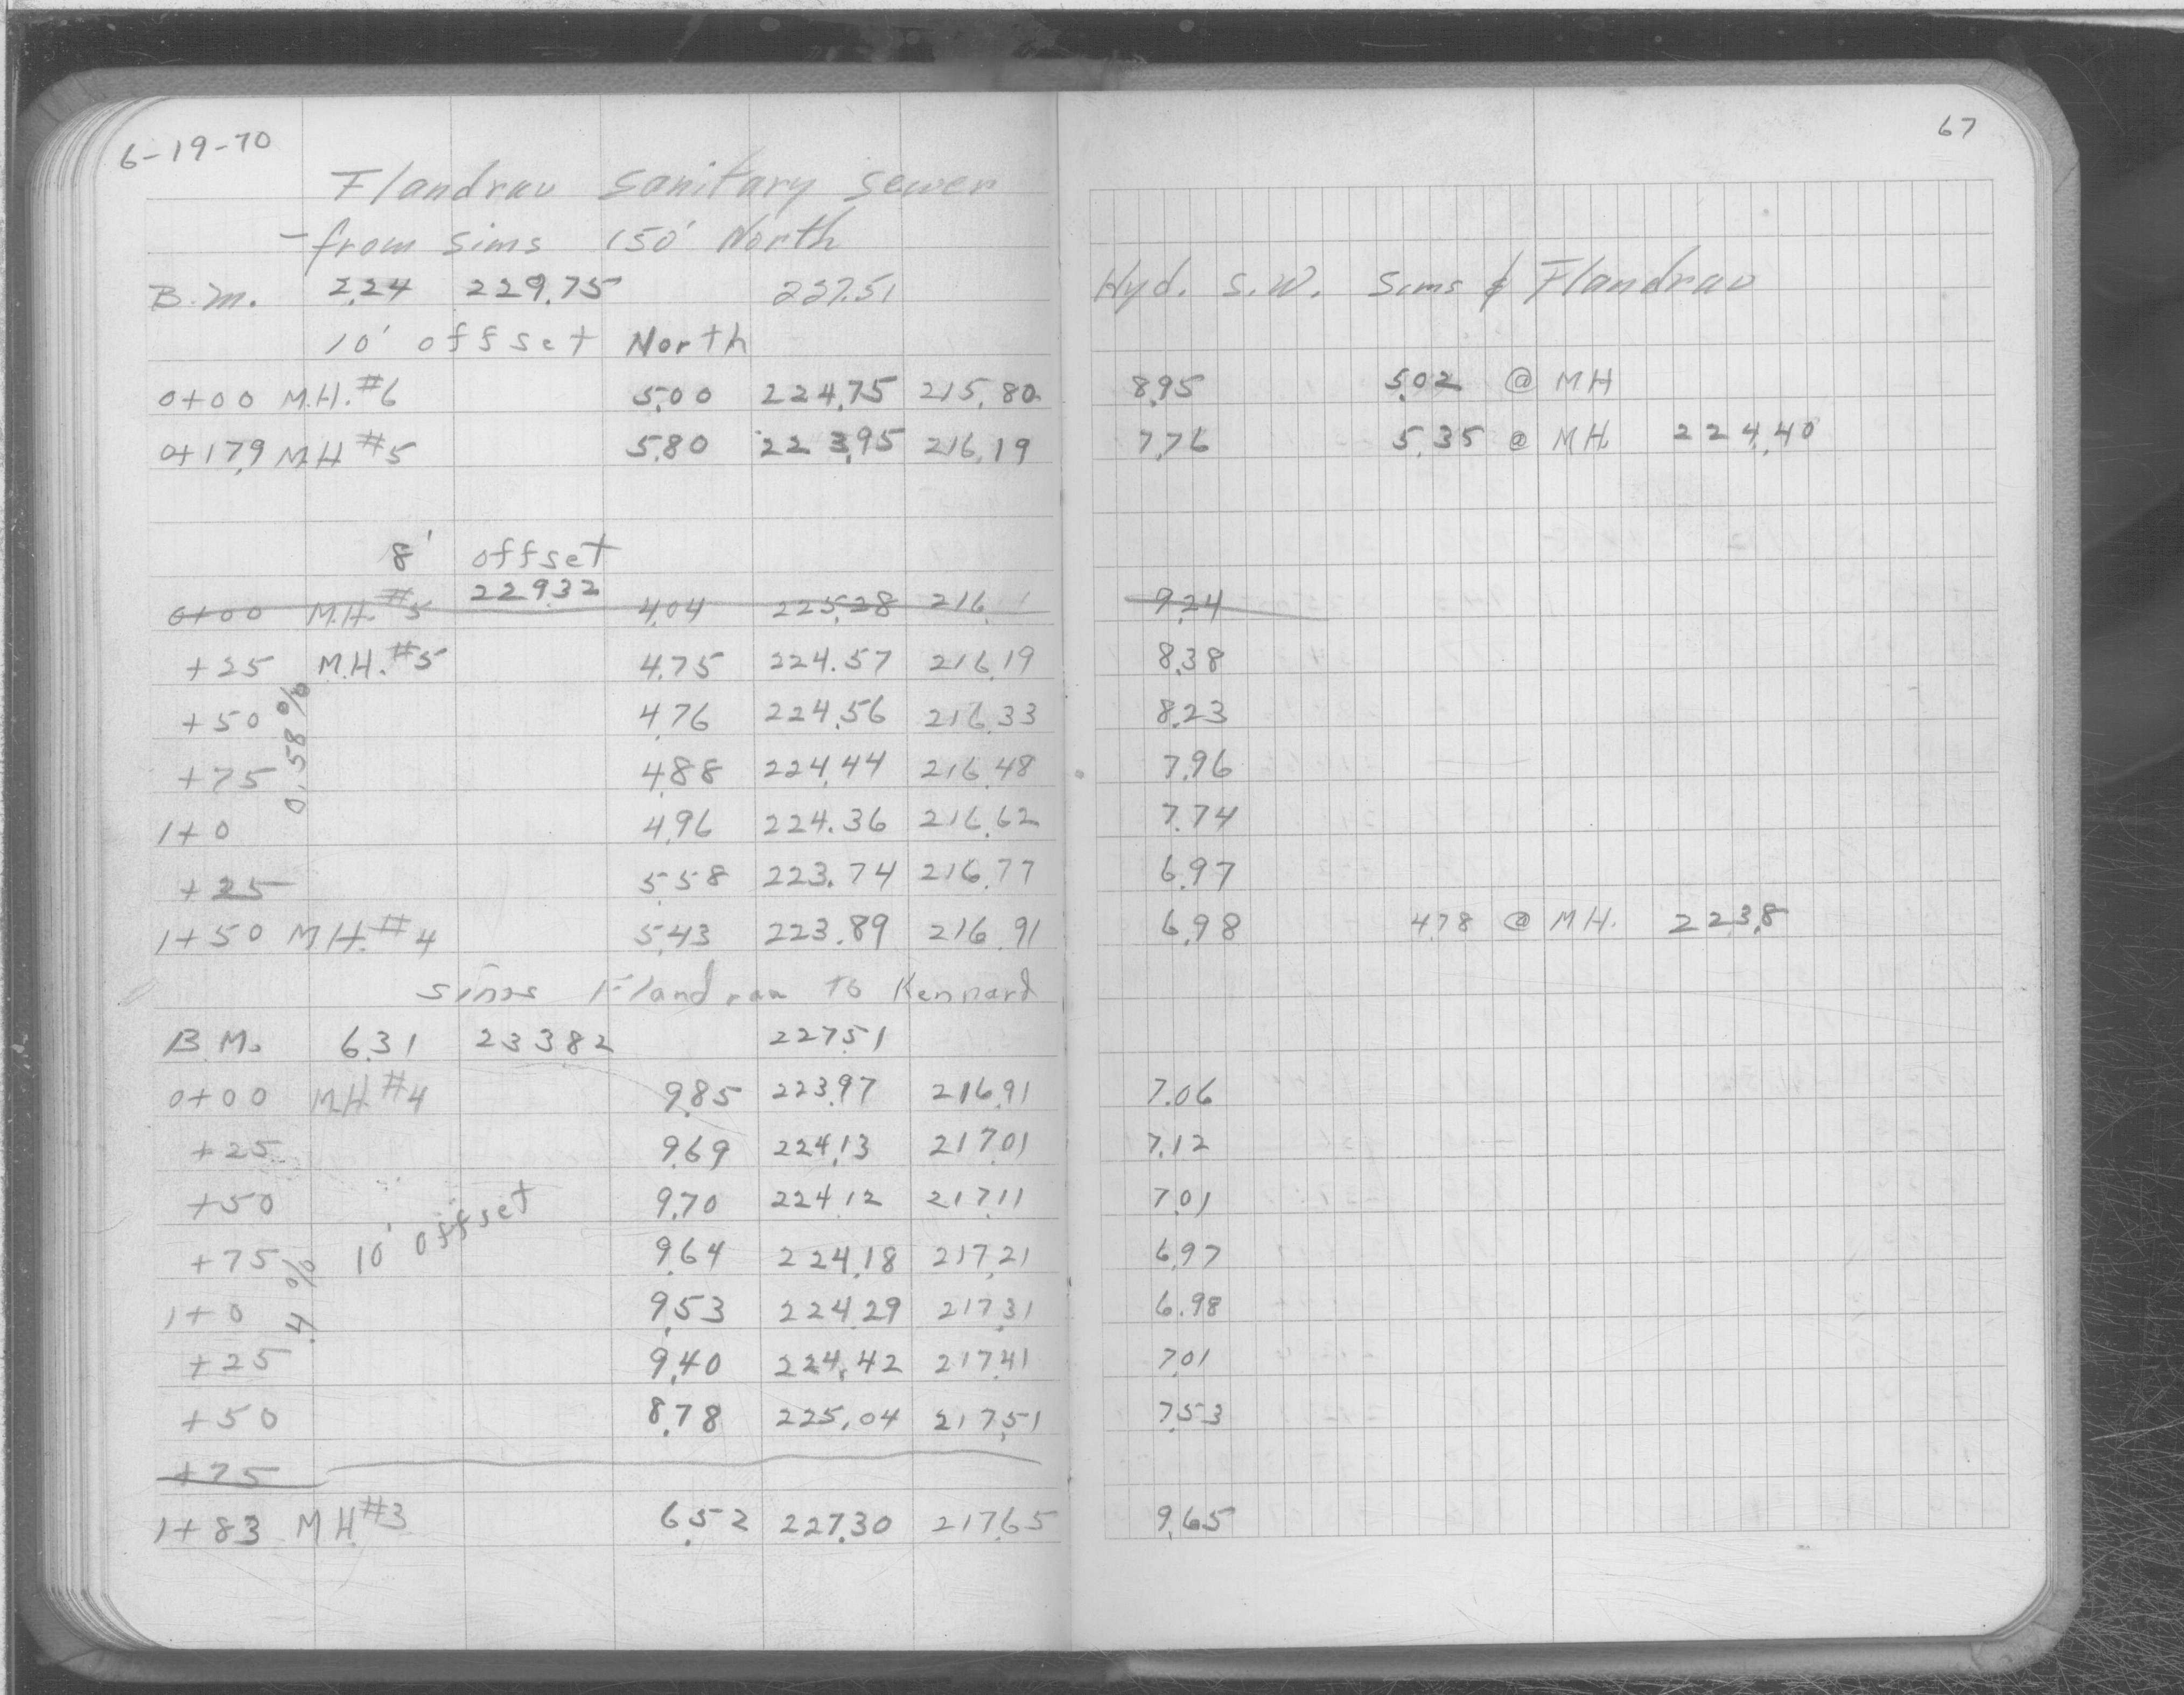 6-19-70
67
Flandrau sanitary sewer
- from Sims 150' North
B.M. 2.24 229.75 227.51 Hyd. S.W. Sims & Flandrau
10' offset North
0+00 M.H. #6 5.00 224.75 215.80 8.95 5.02 @ MH
0+17.9 M.H #5 5.80 223.95 216.19 7.76 5.35 @ MH. 224.40
8' offset
0+00 M.H. #5 229.32 4.04 225.28 216. 9.24
+25 M.H. #5 4.75 224.57 216.19 8.38
+50 4.76 224.56 216.33 8.23
0.58 %
+75 4.88 224.44 216.48 7.96
1+0 4.96 224.36 216.62 7.74
+25 5.58 223.74 216.77 6.97
1+50 MH. #4 5.43 223.89 216.91 6.98 4.78 @ MH. 223.8
Sims Flandrau to Kennard
B.M. 6.31 233.82 227.51
0+00 M.H #4 9.85 223.97 216.91 7.06
+25 9.69 224.13 217.01 7.12
+50 9.70 224.12 217.11 7.01
10' offset
+75 9.64 224.18 217.21 6.97
.4 %
1+0 9.53 224.29 217.31 6.98
+25 9.40 224.42 217.41 7.01
+50 8.78 225.04 217.51 7.53
+75
1+83 M.H #3 6.52 227.30 217.65 9.65